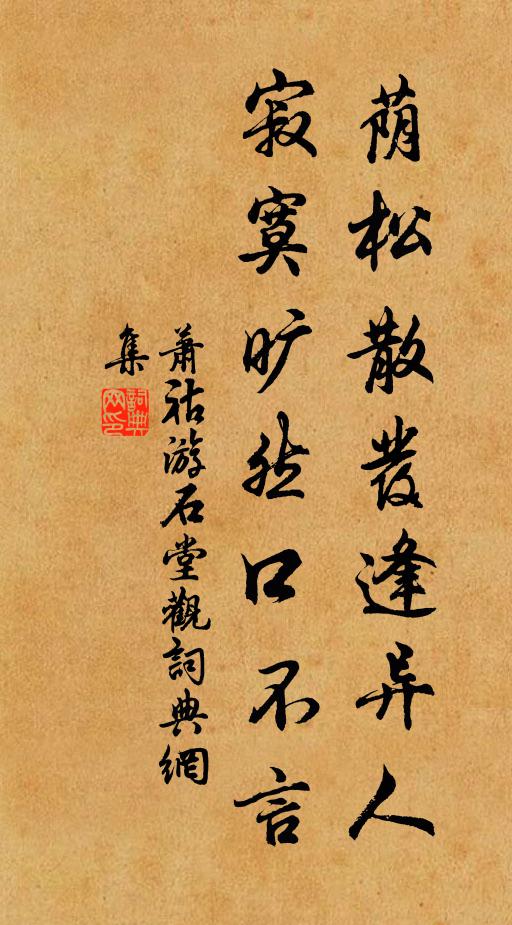 荫松散發逢异人
寂寞旷然口不言
萧祜游石堂觀詞典網
集
詞典網印